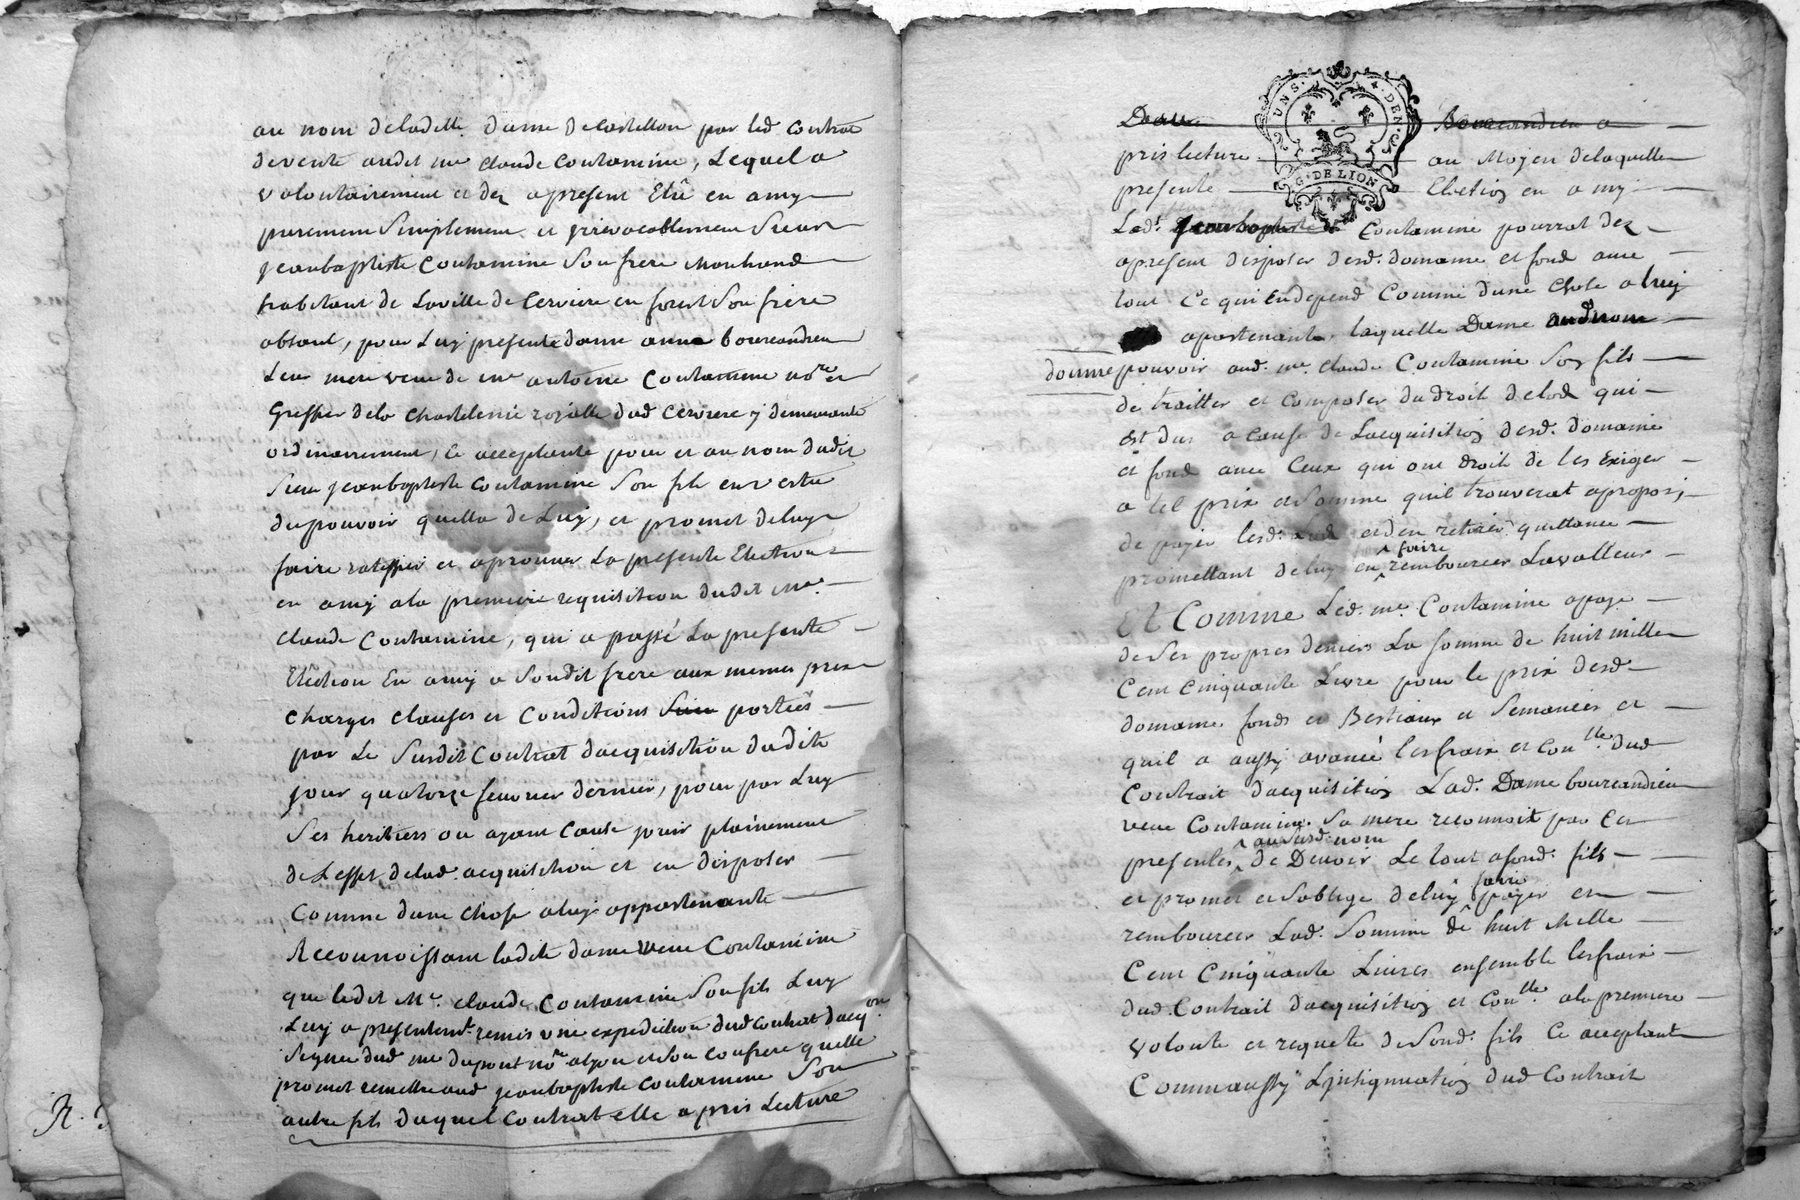 au nom de ladette dame de Castellou par led contrat
devente audit me claude Coutamine, Lequel a
volontairement et dez apresent Elû en amy
purement Simplement et yrrevocablement Sieur
jeanbaptiste Coutamine Son frere Marchand
habitant de Laville de Cerviere en forest Son frere
absant, pour Luy presente dame anne bourcandieu
Leur mere veuve de me antoine Coutamine nore et
Greffier dela Chastelenie roialle dud Cerviere y demeurante
ordinairement, Ce acceptante pour et au nom dudit
Sieur jeanbaptiste Coutamine Son fils en vertu
du pouvoir quella de Luy, et promet deluy
faire ratiffier et aprouver La presente Election
en amy ala premiere requisition dudit Me
Claude Coutamine, qui a passé La presente
Election En amy a Sondit frere aux memes prix
Charges clauses et Conditions portées
par Le Susdit Contrat dacquisition dudit
jour quatorze fevrier dernier, pour par Luy
Ses heritiers ou ayant Cause jouir plainement
de Leffet delad. acquisition et en disposer
Comme dune Chose aluy appartenante
Reconnoissant ladite dame veuve Coutamine
que ledit Me. claude Coutamine Son fils Luy
Luy a presentemt. remis une expedition dud Contrat dacq.on
Signé dud me dupont nore et Son Confrere quelle
promet remettre aud jeanbaptiste Coutamine Son
autre fils duquel Contrat elle a pris Lecture
UNS. DEN.
G. DE LION
Dame Bourcandieu a
pris lecture au Moyen delaquelle
presente Election en amy
Ledt. jeanbaptiste Coutamine pourrat dez
apresent disposer desd. domaine et fond avec
tout Ce qui En depend Comme dune Chose a luy
apartenante, laquelle Dame aud nom
donne pouvoir aud. me. claude Coutamine Son fils
de traitter et Composer du droit de lod qui
est dus a cause de Lacquisition desd. domaine
et fond avec Ceux qui ont droit de les Exiger
a tel prix et Somme quil trouverat apropos,
de payer lesd. Lod et den retirer quittance
promettant deluy en faire rembourcer Lavalleur
Et Comme Led. me. Coutamine apaye
de Ses propres deniers La Somme de huit mille
Cent Cinquante Livre pour le prix desd
domaine fonds et Bestiaux et Semances et
quil a aussy avancé lesfraix et Contlle. dud
Contrait dacquisition Lad. Dame bourcandieu
veuve Coutamine Sa mere reconnoit par Ces
presentes au Susd. nom de Devoir Le tout a Sond. fils
et promet et Soblige deluy faire payer et
rembourcer Lad. Somme de huit Mille
Cent Cinquante Livres ensemble lesfraix
dud Contrait dacquisition et Contlle. ala premiere
volonté et requete de Sond. fils Ce acceptant
Commaussy Linsignuation dud Contrait